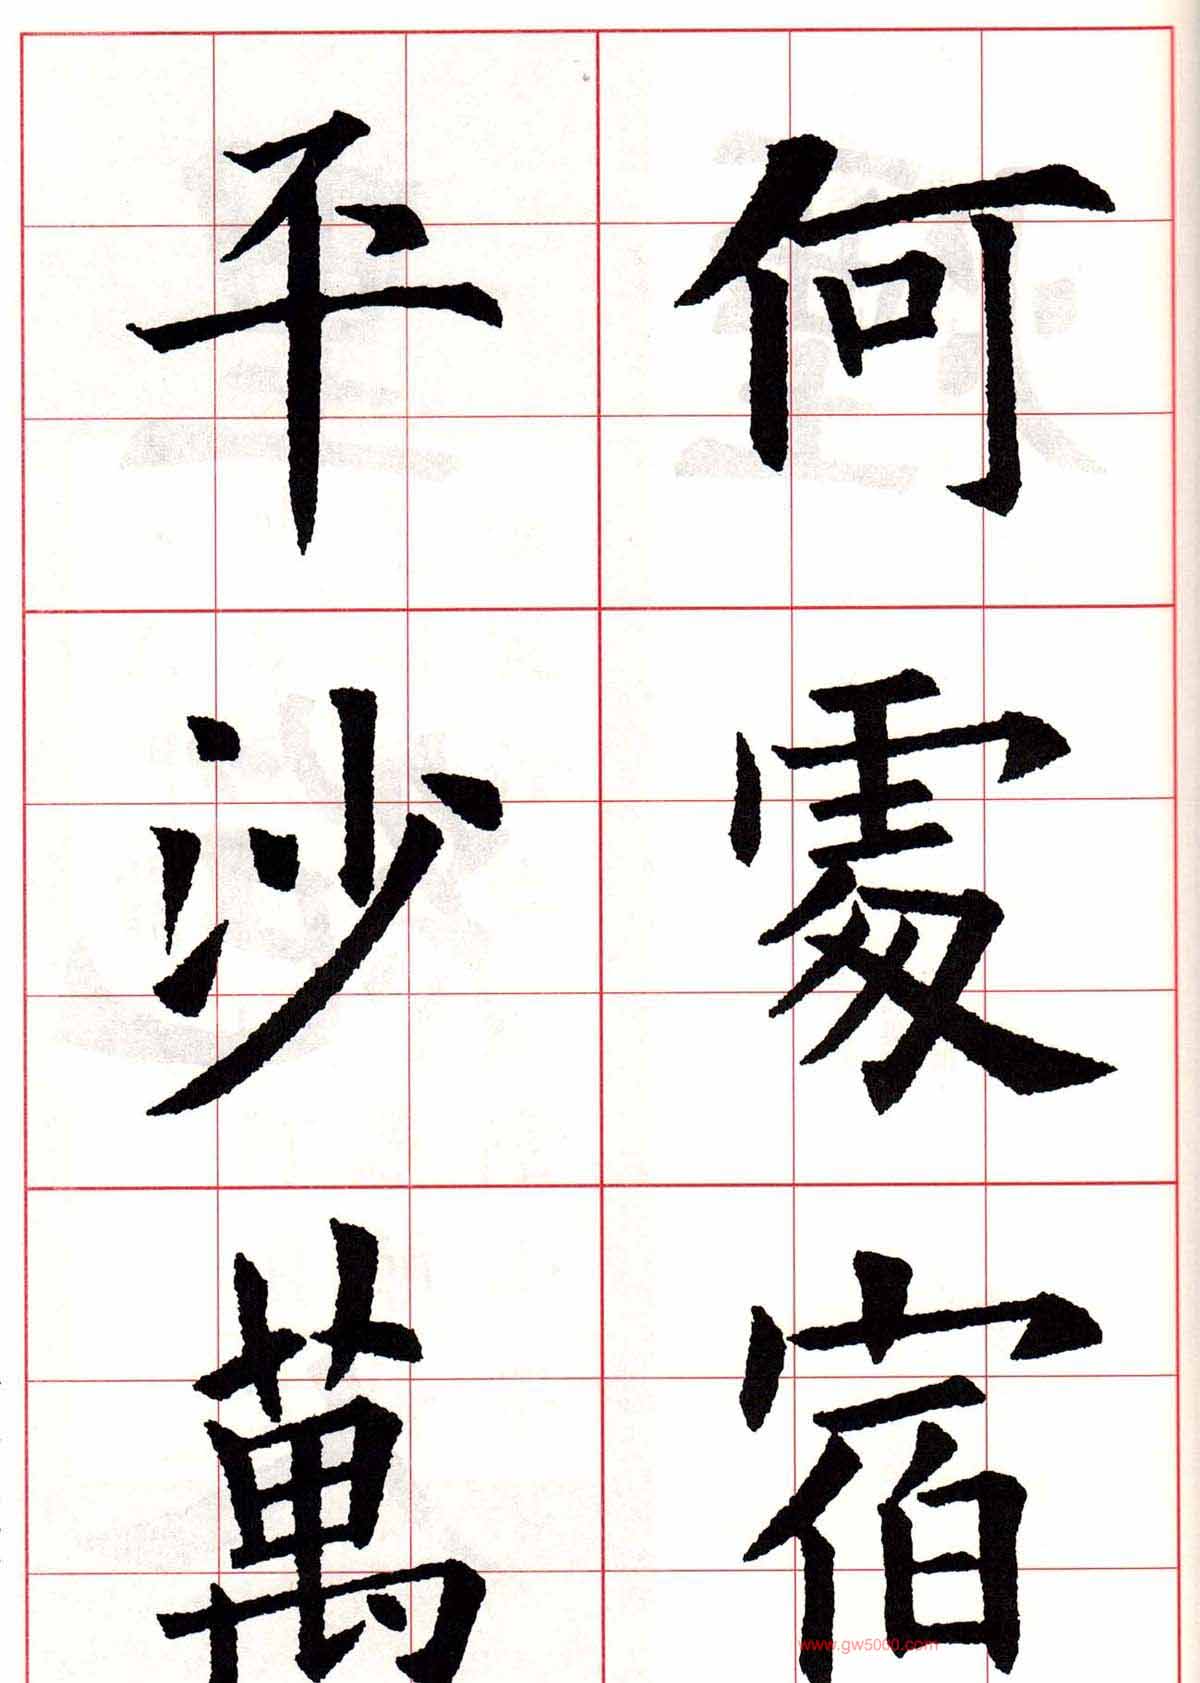 何處宿
平沙萬
www.gw5000.com